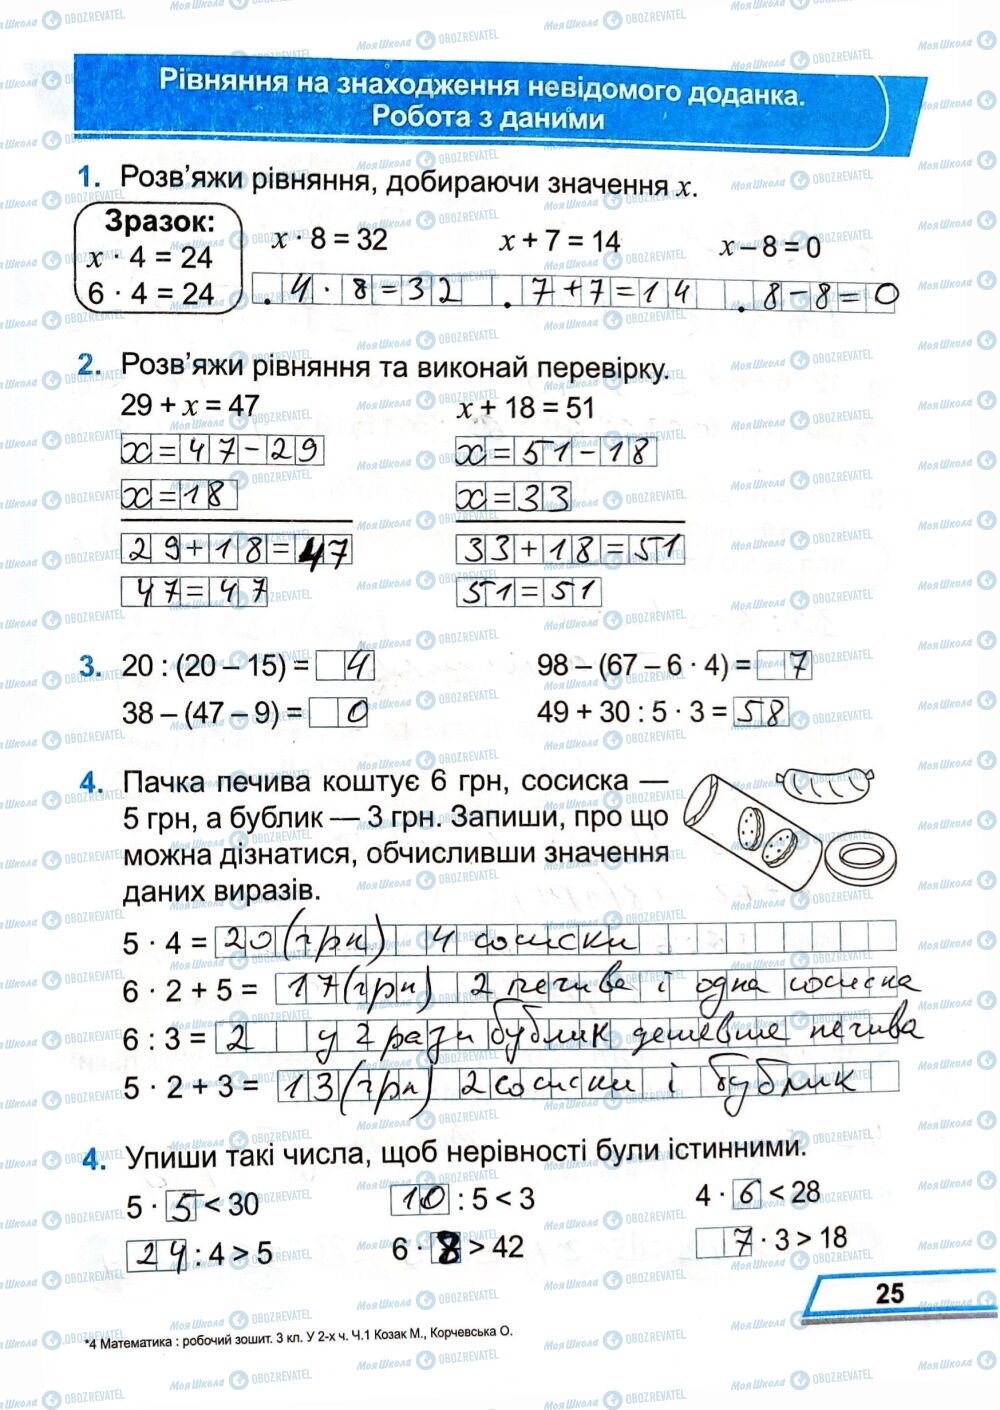 Рівняння на знаходження невідомого доданка.
Робота з даними
1. Розв’яжи рівняння, добираючи значення x.
Зразок:
x · 4 = 24
6 · 4 = 24
x · 8 = 32
x + 7 = 14
x – 8 = 0
4 · 8 = 32
7 + 7 = 14
8 – 8 = 0
2. Розв’яжи рівняння та виконай перевірку.
29 + x = 47
x + 18 = 51
x = 47 – 29
x = 51 – 18
x = 18
x = 33
29 + 18 = 47
33 + 18 = 51
47 = 47
51 = 51
3. 20 : (20 – 15) = 4
98 – (67 – 6 · 4) = 7
38 – (47 – 9) = 0
49 + 30 : 5 · 3 = 58
4. Пачка печива коштує 6 грн, сосиска —
5 грн, а бублик — 3 грн. Запиши, про що
можна дізнатися, обчисливши значення
даних виразів.
5 · 4 = 20 (грн) 4 сосиски
6 · 2 + 5 = 17 (грн) 2 печива і одна сосиска
6 : 3 = 2 у 2 рази бублик дешевше печива
5 · 2 + 3 = 13 (грн) 2 сосиски і бублик
4. Упиши такі числа, щоб нерівності були істинними.
5 · 5 < 30
10 : 5 < 3
4 · 6 < 28
24 : 4 > 5
6 · 8 > 42
7 · 3 > 18
25
*4 Математика : робочий зошит. 3 кл. У 2-х ч. Ч.1 Козак М., Корчевська О.
МояШкола OBOZREVATEL